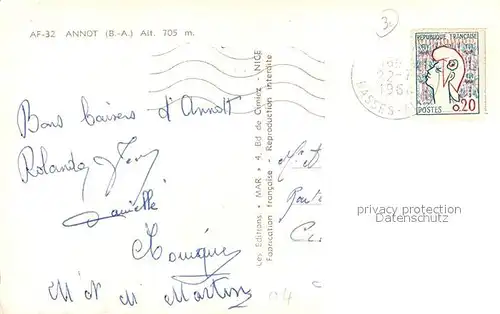 AF-32 ANNOT (B.-A.) Alt. 705 m.
Bons baisers d'Annot
Rolande
Danielle
Monique
Mr et M Martin
Ley. Editions. • MAR • 4, Bd de Cimiez - NICE
Fabrication française - Reproduction interdite
Mr et
Rout
3.
22-7
196
BASSES-A
REPUBLIQUE FRANÇAISE
POSTES 0,20
privacy protection
Datenschutz
04